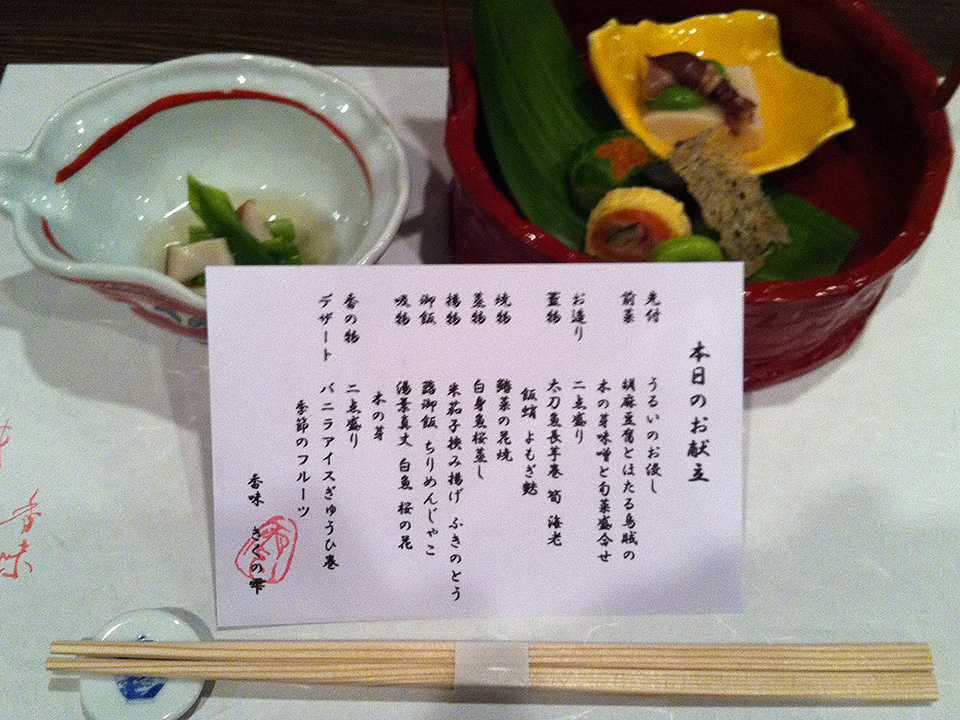 本日のお献立
先付 うるいのお浸し
前菜 胡麻豆腐とほたる烏賊の
木の芽味噌と旬菜盛合せ
お造り 二点盛り
蓋物 太刀魚長芋巻 筍 海老
飯蛸 よもぎ麩
焼物 鰆菜の花焼
蒸物 白身魚桜蒸し
揚物 米茄子挟み揚げ ふきのとう
御飯 蕗御飯 ちりめんじゃこ
吸物 湯葉真丈 白魚 桜の花
木の芽
香の物 二点盛り
デザート バニラアイスぎゅうひ巻
季節のフルーツ
香味 きくの雫
香味